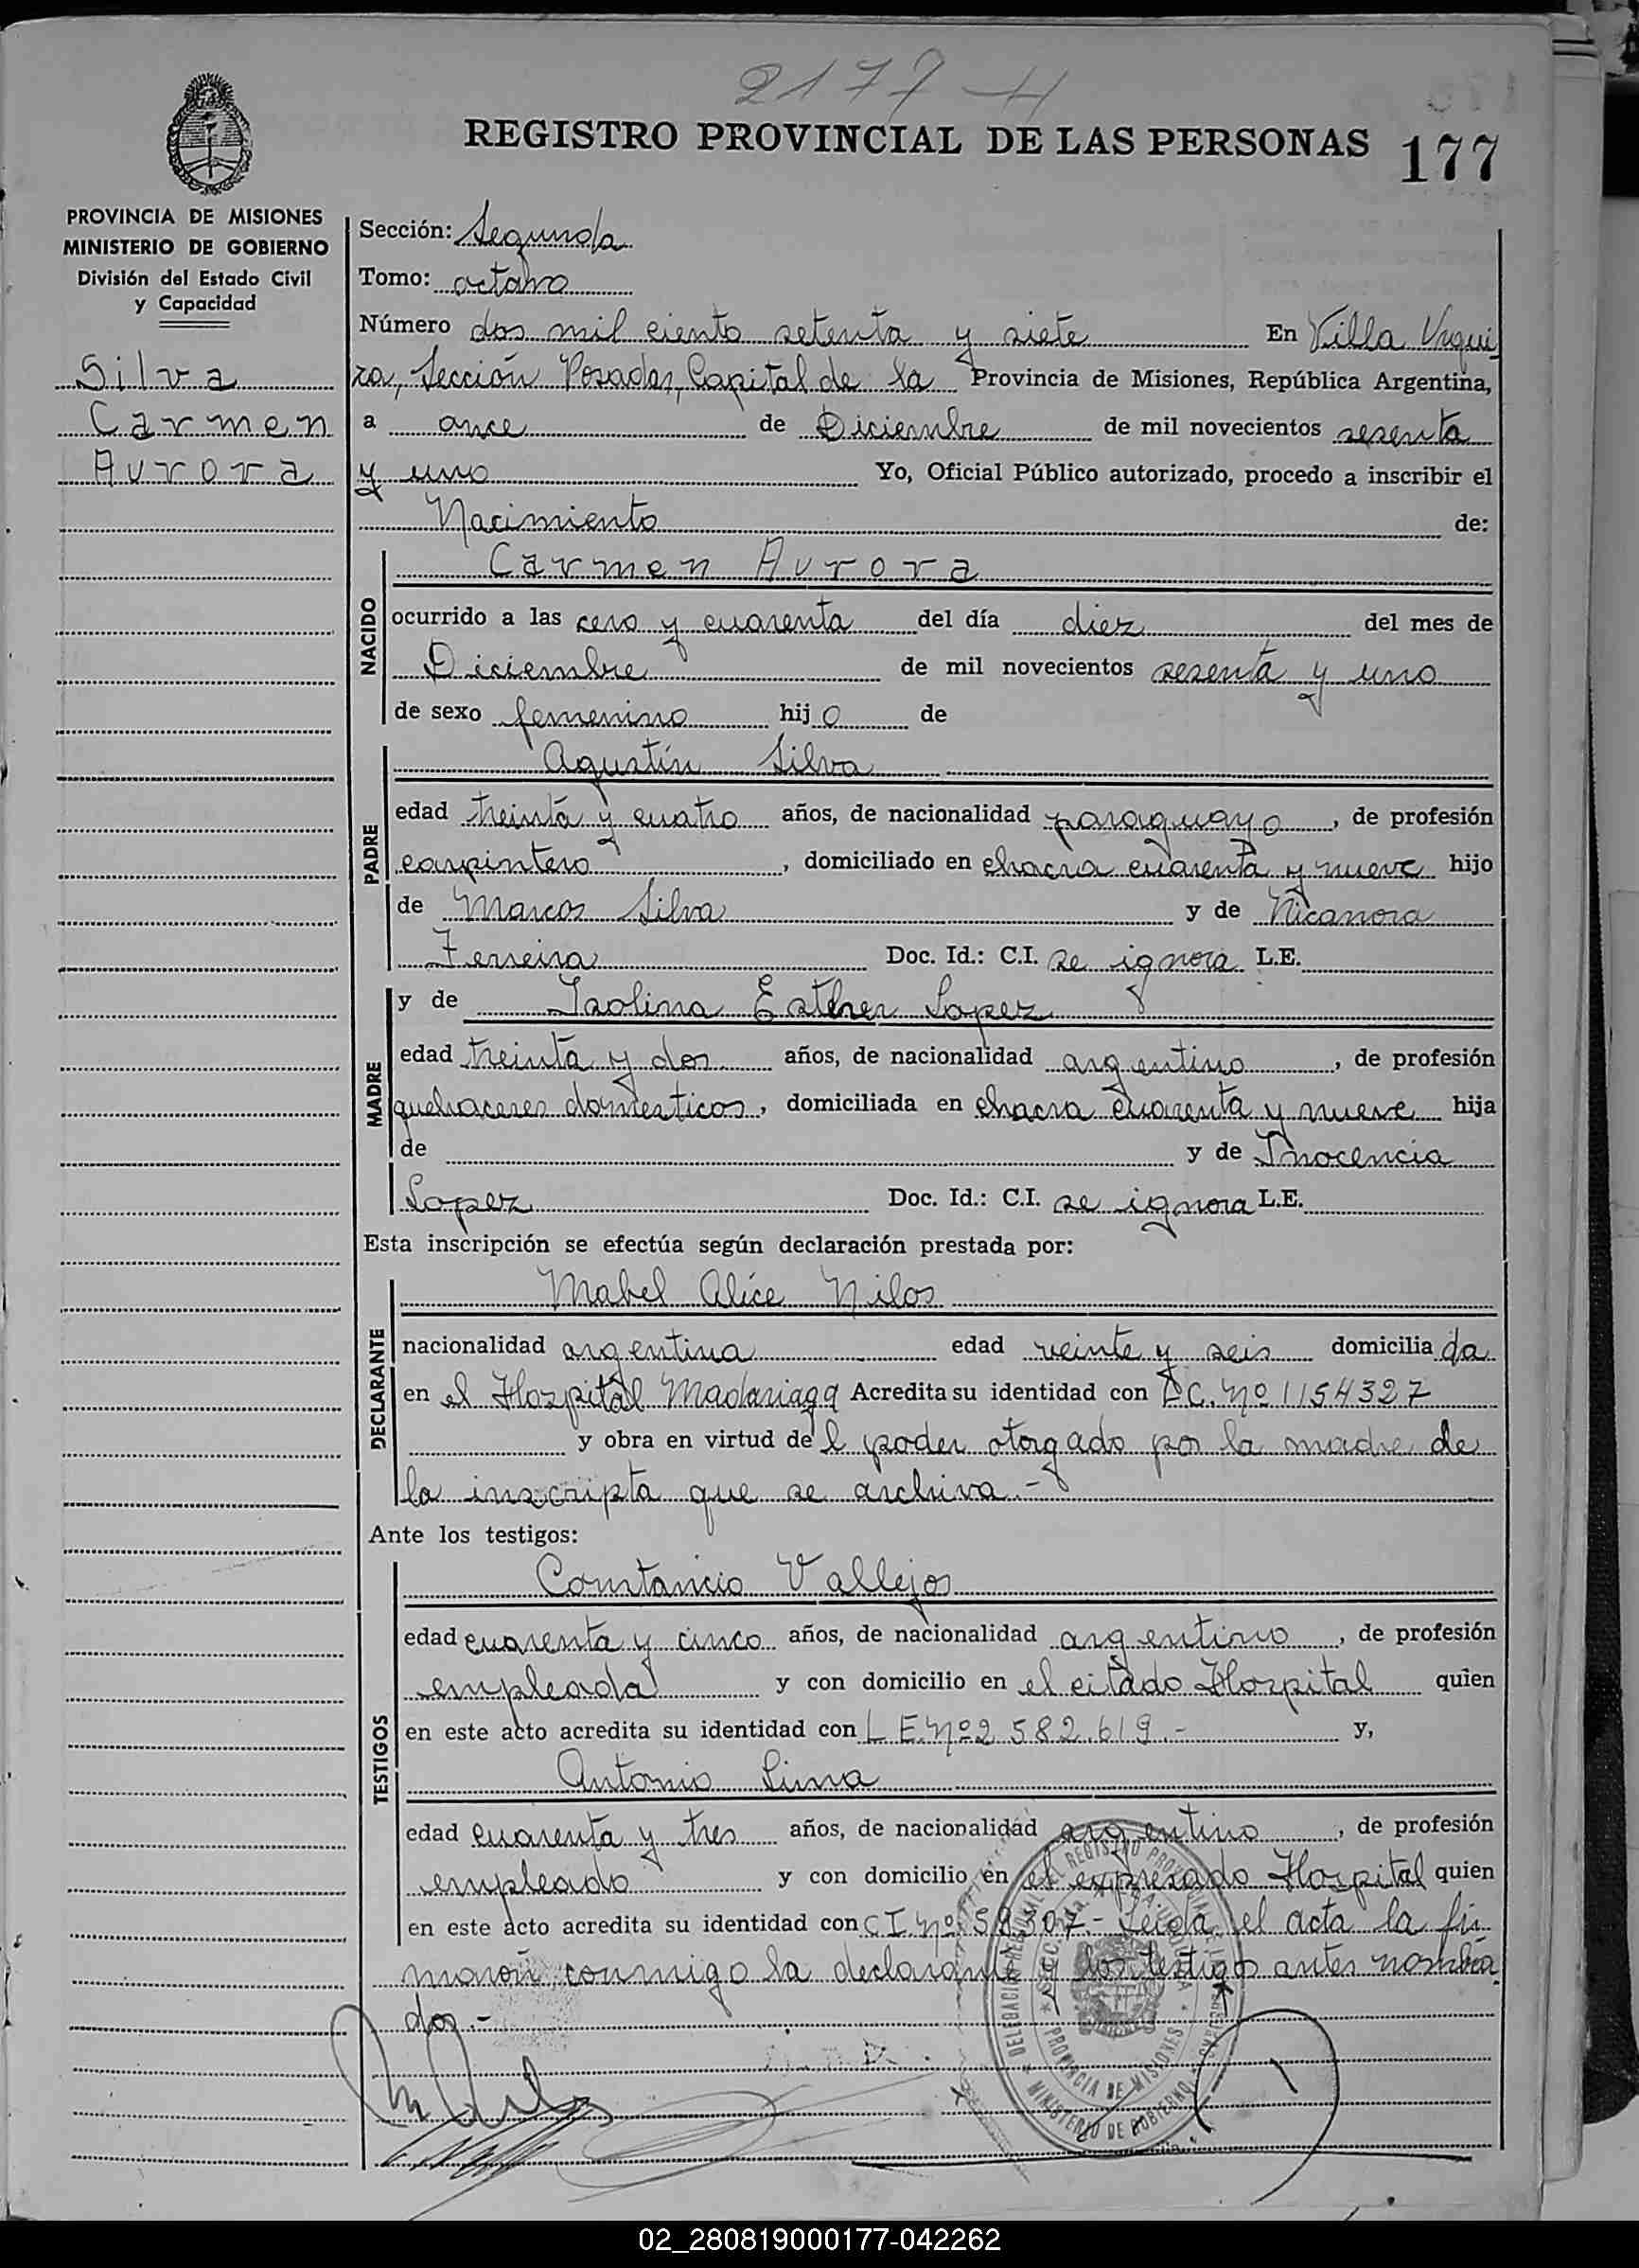 2177-H
REGISTRO PROVINCIAL DE LAS PERSONAS 177
PROVINCIA DE MISIONES
MINISTERIO DE GOBIERNO
División del Estado Civil
y Capacidad
Silva
Carmen
Aurora
Sección: Segunda
Tomo: octavo
Número dos mil ciento setenta y siete En Villa Urqui
za, Sección Posadas, Capital de la Provincia de Misiones, República Argentina,
a once de Diciembre de mil novecientos sesenta
y uno Yo, Oficial Público autorizado, procedo a inscribir el
Nacimiento de:
NACIDO
Carmen Aurora
ocurrido a las cero y cuarenta del día diez del mes de
Diciembre de mil novecientos sesenta y uno
de sexo femenino hijo de
PADRE
Agustín Silva
edad treinta y cuatro años, de nacionalidad paraguayo, de profesión
carpintero, domiciliado en chacra cuarenta y nueve hijo
de Marcos Silva y de Nicanora
Ferreira Doc. Id.: C.I. se ignora L.E.
MADRE
y de Isolina Esther Lopez
edad treinta y dos años, de nacionalidad argentino, de profesión
quehaceres domesticos, domiciliada en chacra cuarenta y nueve hija
de y de Inocencia
Lopez Doc. Id.: C.I. se ignora L.E.
Esta inscripción se efectúa según declaración prestada por:
DECLARANTE
Mabel Alice Nilos
nacionalidad argentina edad veinte y seis domiciliada
en el Hospital Madariaga Acredita su identidad con LC. Nº 1154327
y obra en virtud del poder otorgado por la madre de
la inscripta que se archiva.-
Ante los testigos:
TESTIGOS
Constancio Vallejos
edad cuarenta y cinco años, de nacionalidad argentino, de profesión
empleada y con domicilio en el citado Hospital quien
en este acto acredita su identidad con L E. Nº 2 582.619.- y,
Antonio Lima
edad cuarenta y tres años, de nacionalidad argentino, de profesión
empleado y con domicilio en el expresado Hospital quien
en este acto acredita su identidad con C I Nº 58307.- Leida el acta la fir
maron conmigo la declarante y los testigos antes nombra
dos.-
PROVINCIA DE MISIONES
MINISTERIO DE GOBIERNO
02_280819000177-042262